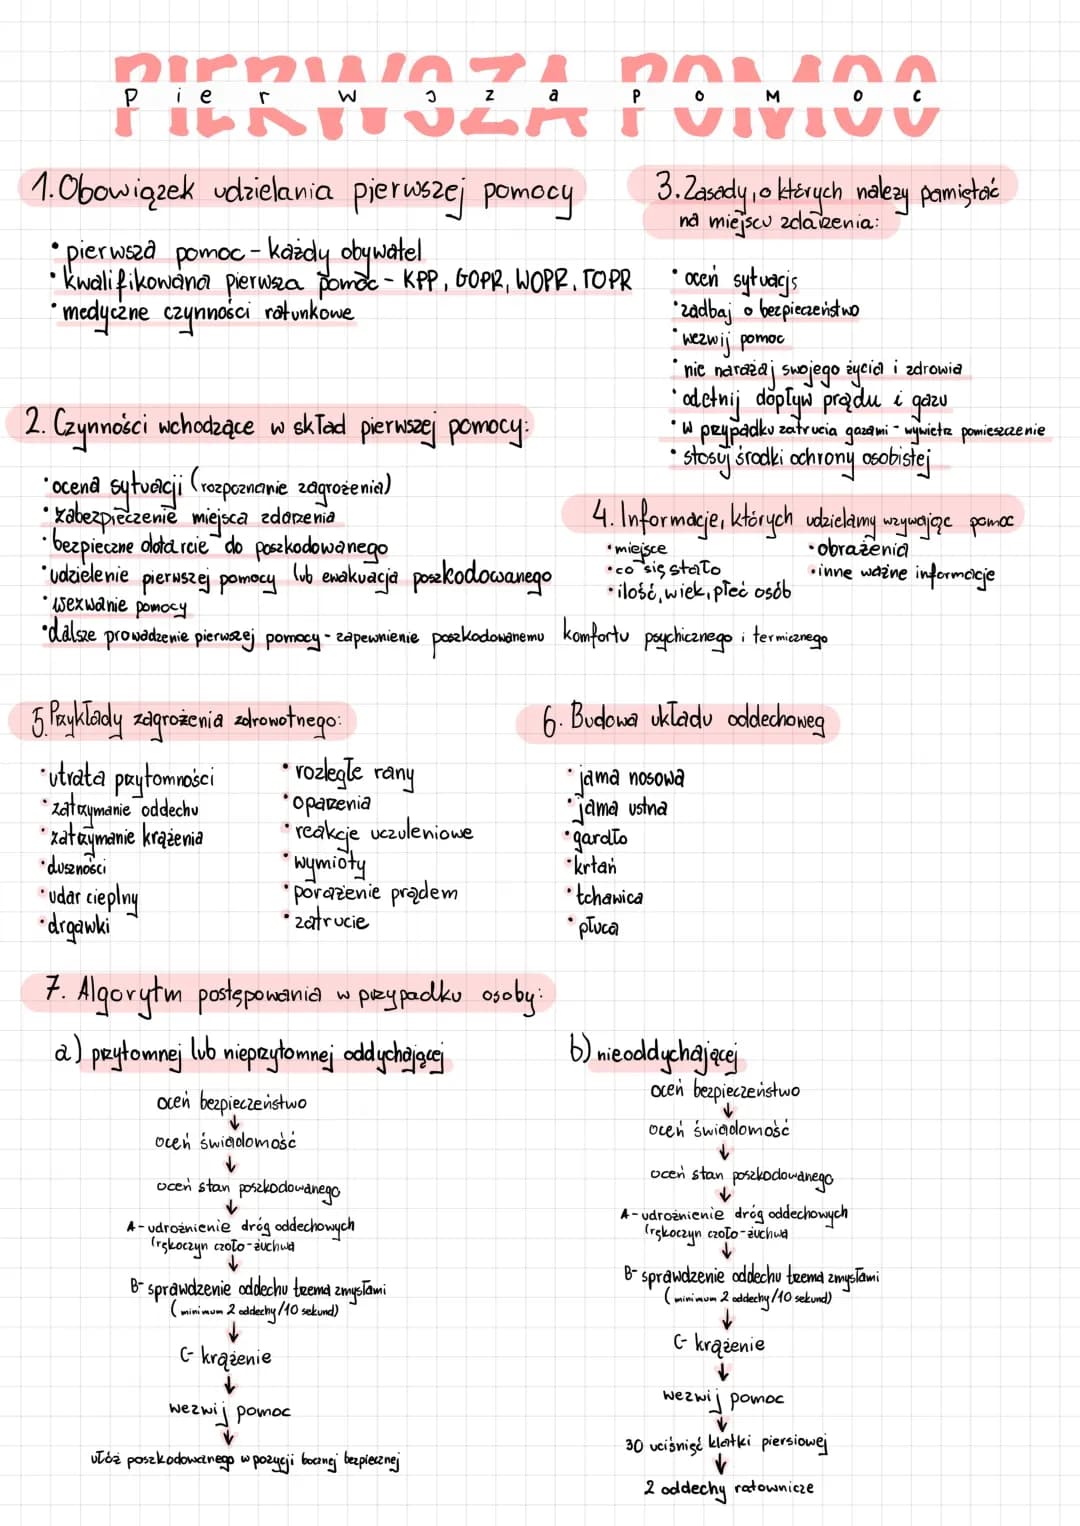 PIERWSZA POMOC
Pierwsza Pomoc
1. Obowiązek udzielania pierwszej pomocy
• pierwsza pomoc - każdy obywatel
• kwalifikowana pierwsza pomoc - KPP, GOPR, WOPR, TOPR
• medyczne czynności ratunkowe
2. Czynności wchodzące w skład pierwszej pomocy:
• ocena sytuacji (rozpoznanie zagrożenia)
• zabezpieczenie miejsca zdarzenia
• bezpieczne dotarcie do poszkodowanego
• udzielenie pierwszej pomocy lub ewakuacja poszkodowanego
• wezwanie pomocy
• dalsze prowadzenie pierwszej pomocy - zapewnienie poszkodowanemu komfortu psychicznego i termicznego
3. Zasady, o których należy pamiętać
na miejscu zdarzenia:
• oceń sytuację
• zadbaj o bezpieczeństwo
• wezwij pomoc
• nie narażaj swojego życia i zdrowia
• odetnij dopływ prądu i gazu
• w przypadku zatrucia gazami - wywietrz pomieszczenie
• stosuj środki ochrony osobistej
4. Informacje, których udzielamy wzywając pomoc
• miejsce
• co się stało
• ilość, wiek, płeć osób
• obrażenia
• inne ważne informacje
5. Przykłady zagrożenia zdrowotnego:
• utrata przytomności
• zatrzymanie oddechu
• zatrzymanie krążenia
• duszności
• udar cieplny
• drgawki
• rozległe rany
• oparzenia
• reakcje uczuleniowe
• wymioty
• porażenie prądem
• zatrucie
6. Budowa układu oddechoweg
• jama nosowa
• jama ustna
• gardło
• krtań
• tchawica
• płuca
7. Algorytm postępowania w przypadku osoby:
a) przytomnej lub nieprzytomnej oddychającej
oceń bezpieczeństwo
↓
oceń świadomość
↓
oceń stan poszkodowanego
↓
A - udrożnienie dróg oddechowych
(rękoczyn czoło-żuchwa
↓
B - sprawdzenie oddechu trzema zmysłami
(minimum 2 oddechy/10 sekund)
↓
C - krążenie
↓
wezwij pomoc
↓
ułóż poszkodowanego w pozycji bocznej bezpiecznej
b) nieoddychającej
oceń bezpieczeństwo
↓
oceń świadomość
↓
oceń stan poszkodowanego
↓
A - udrożnienie dróg oddechowych
(rękoczyn czoło-żuchwa
↓
B - sprawdzenie oddechu trzema zmysłami
(minimum 2 oddechy/10 sekund)
↓
C - krążenie
↓
wezwij pomoc
↓
30 uciśnięć klatki piersiowej
↓
2 oddechy ratownicze